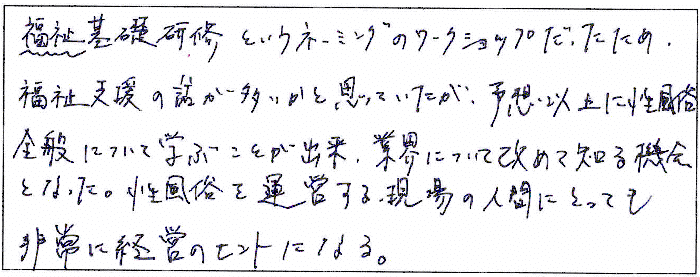 福祉基礎研修というネーミングのワークショップだったため、
福祉支援の話が多いかと思っていたが、予想以上に性風俗
全般について学ぶことが出来、業界について改めて知る機会
となった。性風俗を運営する現場の人間にとっても
非常に経営のヒントになる。